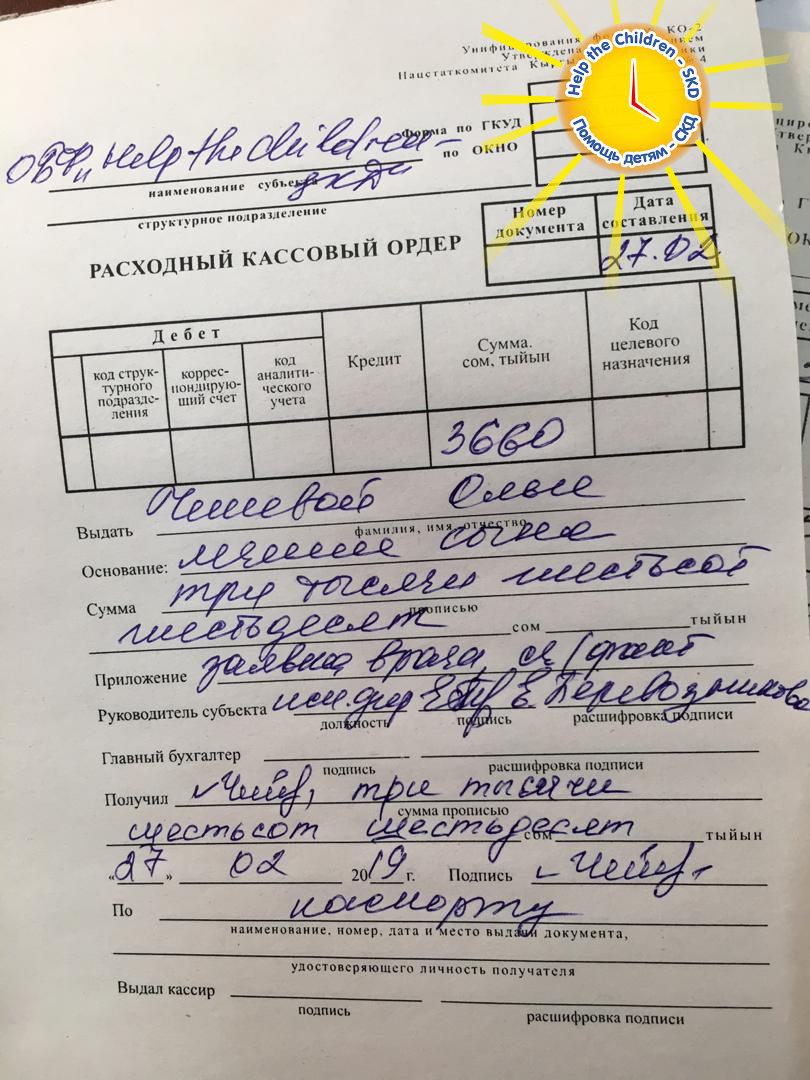 Help the Children - SKD
Помощь детям - СКД
КО-2
Утверждена
Нацстаткомитета
Форма по ГКУД
по ОКНО
ОБФ "Help the Children -
СКД"
наименование субъекта
структурное подразделение
Номер документа
Дата составления
27.02
РАСХОДНЫЙ КАССОВЫЙ ОРДЕР
Дебет
код струк-
турного
подразде-
ления
коррес-
пондирую-
щий счет
код
аналити-
ческого
учета
Кредит
Сумма.
сом, тыйын
Код
целевого
назначения
3660
Выдать Ольге
фамилия, имя, отчество
Основание: лечение сына
Сумма три тысячи шестьсот
прописью
шестьдесят сом тыйын
Приложение заявка врача,
Руководитель субъекта исп.дир Е Перевозникова
должность подпись расшифровка подписи
Главный бухгалтер
подпись расшифровка подписи
Получил три тысячи
сумма прописью
шестьсот шестьдесят сом тыйын
«27» 02 2019 г. Подпись
По паспорту
наименование, номер, дата и место выдачи документа,
удостоверяющего личность получателя
Выдал кассир
подпись расшифровка подписи